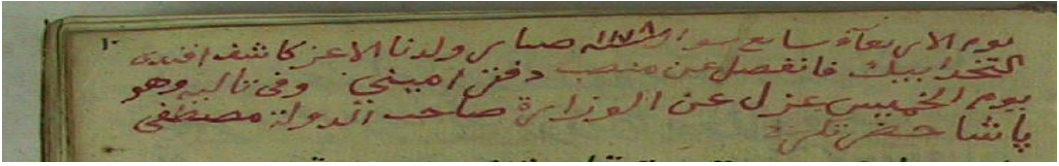 ١٠
يوم الاربعآء سابع شوال سنة ١١٧٨ صار ولدنا الاعز كاشف افندى
كتخدابيك فانفصل عن منصب دفتر امينى وفى تاليه وهو
يوم الخميس عزل عن الوزارة صاحب الدولة مصطفى
پاشا حضرتلرى